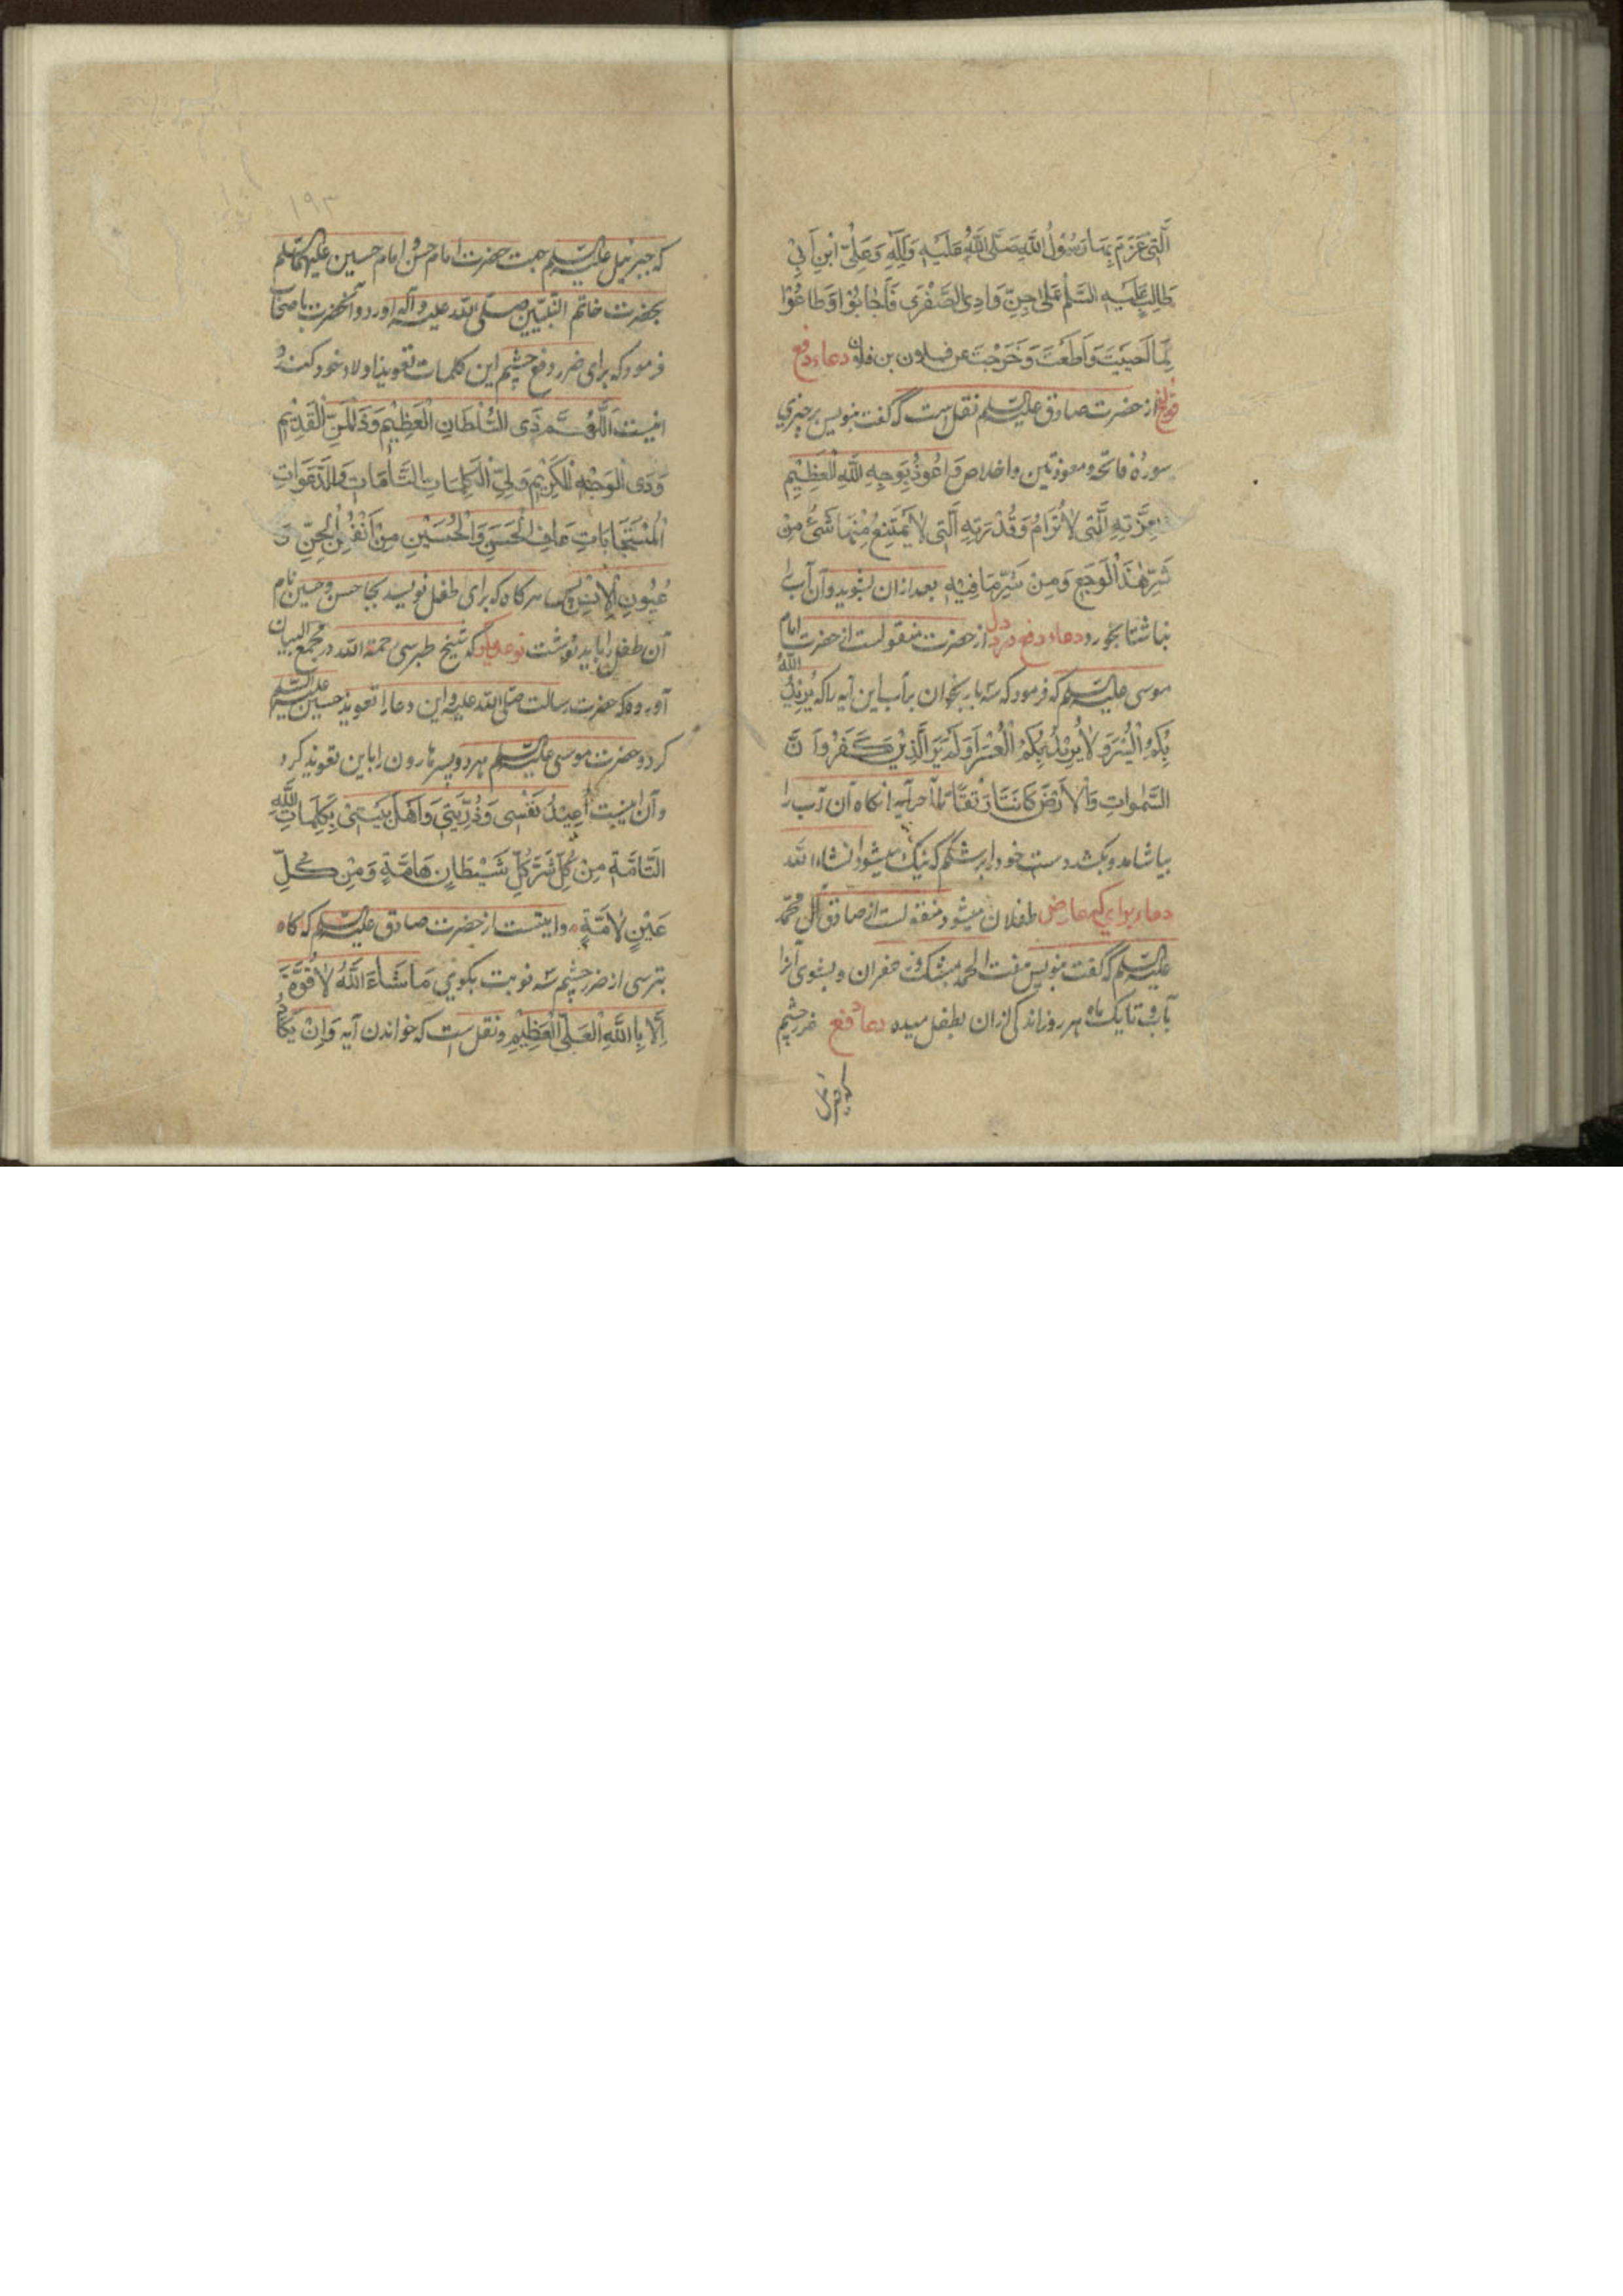 الَّتِی عَزَمَ بِهَا رَسُوْلُ اللهِ صَلَّی اللهُ عَلَیْهِ وَآلِهِ وَعَلِیِّ ابْنِ اَبِیْ
طَالِبٍ عَلَیْهِ السَّلٰمُ عَلٰی جِنِّ وَادِی الصَّفْرَی فَاَجَابُوْا وَطَاعُوْا
لَمَّا اَجَبْتَ وَاَطَعْتَ وَخَرَجْتَ عن فلان بن فلان دعاء دفع
قولنج از حضرت صادق علیه السلم نقل است که گفت بنویس بر چیزی
سورهٔ فاتحه و معوذتین و اخلاص و اَعُوْذُ بِوَجْهِ اللهِ الْعَظِیْمِ
بِعِزَّتِهِ الَّتِی لَا تُرَامُ وَقُدْرَتِهِ الَّتِی لَا یَمْتَنِعُ مِنْهَا شَیْءٌ مِنْ
شَرِّ هٰذَا الْوَجَعِ وَمِنْ شَرِّ مَا فِیْهِ بعد ازان بشوید و آن آب را
بناشتا بخورد دعاء دفع درد دل از حضرت منقولست از حضرت امام
موسی علیه السلم که فرمود که سه بار بخوان بر آب این آیه را که یُرِیْدُ اللهُ
بِکُمُ الْیُسْرَ وَلَا یُرِیْدُ بِکُمُ الْعُسْرَ اَوَلَمْ یَرَ الَّذِیْنَ کَفَرُوْا اَنَّ
السَّمٰوَاتِ وَالْاَرْضَ کَانَتَا رَتْقًا تا آخر آیه انکاه آن آب را
بیاشامد و بکشد دست خود را بر شکم که نیک میشود انشاء الله
دعاء برای که عارض طفلان میشود منقولست از صادق آل محمد
علیه السلم که گفت بنویس هفت الحمد بمشک و زعفران و بشوی آنرا
بآب و تا یک ماه هر روز اندکی ازان بطفل میده دعاء دفع ضرر چشم
۱۹۳
که جبرئیل علیه السلم جهت حضرت امام حسن و امام حسین علیهما السلم
بحضرت خاتم النبیین صلی الله علیه وآله آورد و آنحضرت باصحاب
فرمود که برای ضرر دفع چشم این کلمات تعویذ اولاد خود کنند و
اینست اَللّٰهُمَّ ذَی السُّلْطَانِ الْعَظِیْمِ وَذَالْمَنِّ الْقَدِیْمِ
وَذَی الْوَجْهِ الْکَرِیْمِ وَلِیِّ الْکَلِمَاتِ التَّامَّاتِ وَالدَّعَوَاتِ
الْمُسْتَجَابَاتِ عَافِ الْحَسَنَ وَالْحُسَیْنِ مِنْ اَنْفُسِ الْجِنِّ وَ
عُیُوْنِ الْاِنْسِ پس هر کاه که برای طفل نویسد بجا حسن و حسین نام
آن طفل را باید نوشت نوع دیکر که شیخ طبرسی رحمة الله در مجمع البیان
آورده که حضرت رسالت صلی الله علیه و این دعا را تعویذ حسین علیه السلم
کرد و حضرت موسی علیه السلم هر دو پسر هارون را باین تعویذ کرد
و آن اینست اُعِیْذُ نَفْسِی وَذُرِّیَّتِی وَاَهْلَ بَیْتِیْ بِکَلِمَاتِ اللهِ
التَّامَّةِ مِنْ کُلِّ شَرِّ کُلِّ شَیْطَانٍ هَامَّةٍ وَمِنْ کُلِّ
عَیْنٍ لَامَّةٍ وایتست از حضرت صادق علیه السلم که کاه
بترسی از ضرر چشم سه نوبت بکوی مَاشَاءَ اللهُ لَا قُوَّةَ
اِلَّا بِاللهِ الْعَلِیِّ الْعَظِیْمِ و نقل است که خواندن آیه وَاِنْ یَکَادُ